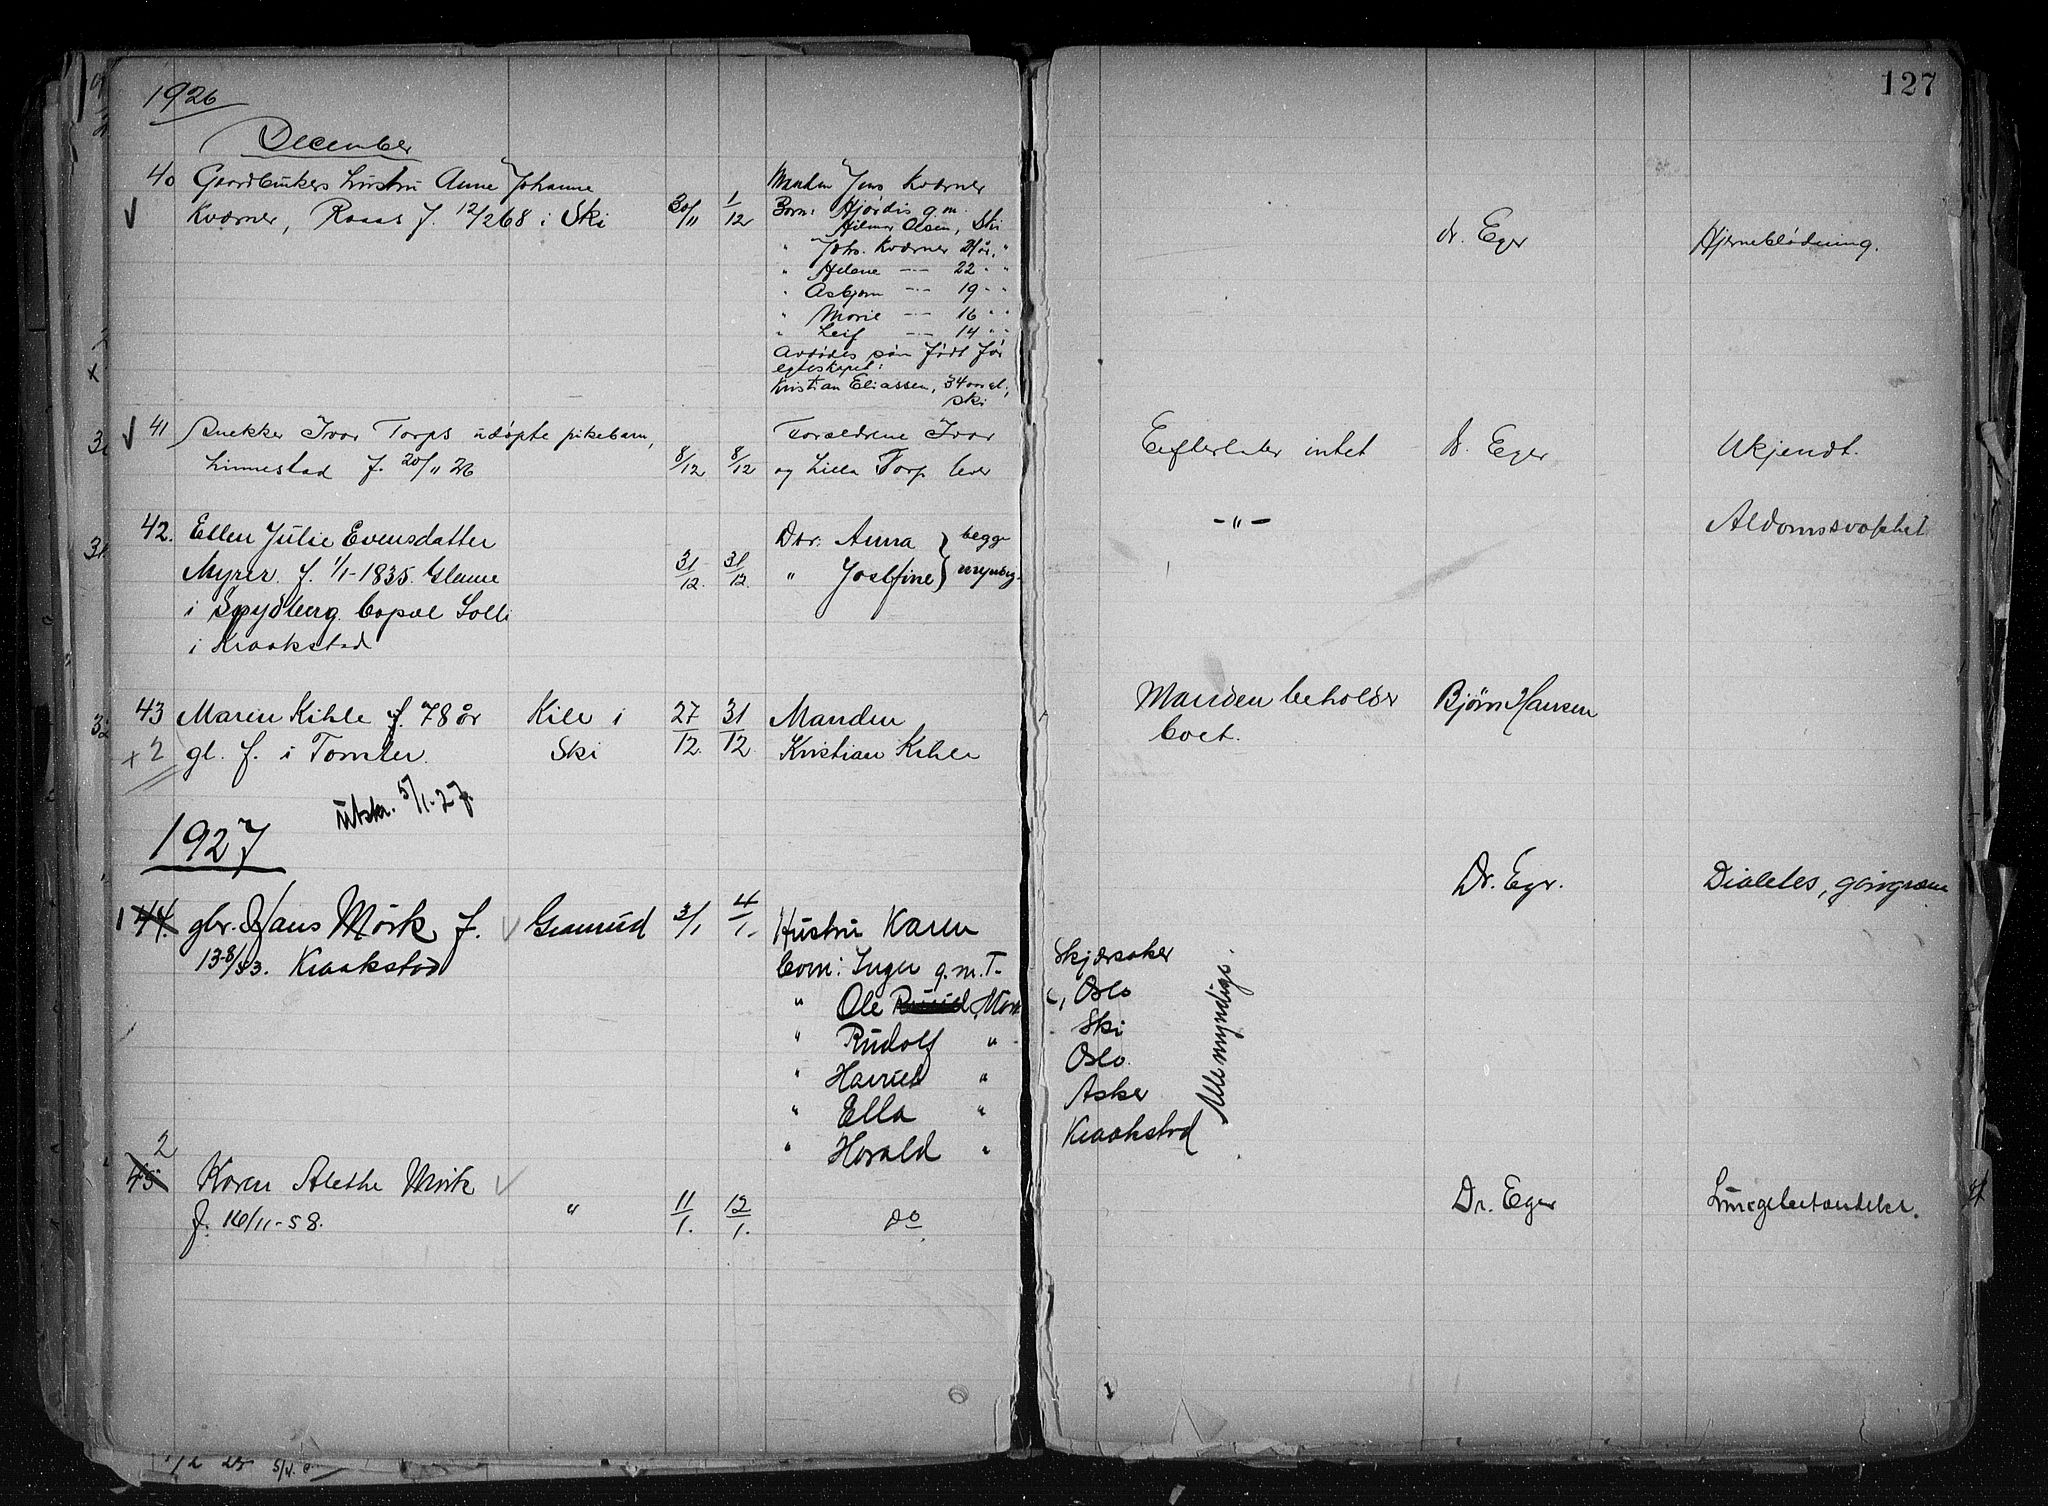 1926
127
December
40 Gaardbrukers hustru Anne Johanne
Kværner, Raaas f. 12/2 68 i Ski
30/11
1/12
Manden Jens Kværner
Barn: Hjørdis g.m.
Hilmar Olsen, Ski
" Johs. Kværner 24 år, "
" Helene -"- 22 " "
" Asbjørn -"- 19 " "
" Marie -"- 16 " "
" Leif -"- 14 " "
Avdødes søn født før
egteskapet:
Kristian Eliassen, 34 aar,
Ski
dr. Eger
Hjerneblødning.
41 Snekker Ivar Torps udøpte pikebarn,
Linnestad f. 20/11 26
8/12
8/12
Forældrene Ivar
og Lilla Torp lever
Efterlater intet
dr. Eger
Ukjendt.
42. Ellen Julie Evensdatter
Myrer. f. 1/1-1835. Glenne
i Spydberg. bopæl Solli
i Kraakstad
31/12.
31/12.
Dør: Anna } begge
" Josefine } myndig
-"-
Aldomssvakhet
43 Maren Kihle f. 78 år
x 2 gl. f. i Tomter.
Kile i
Ski
27/12.
31/12
Manden
Kristian Kihle
Manden beholder
boet.
Bjørn Hansen
utskr. 5/1-27.
1927
1 44. gbr. Hans Mørk f.
13-8/53. Kraakstad
Granrud
3/1
4/1.
Hustru Karen
barn: Inger g.m. T. Skjærsaker
" Ole Ruud, Mørk, Oslo
" Rudolf " Ski
" Harriet " Oslo.
" Ella " Asker
" Harald " Kraakstad
Alle myndige.
Dr. Eger.
Diabetes, gangræn
2
45 Karen Alethe Mørk
f. 16/11-58.
"
11/1.
12/1.
do
Dr. Eger
Lungebetændelse.